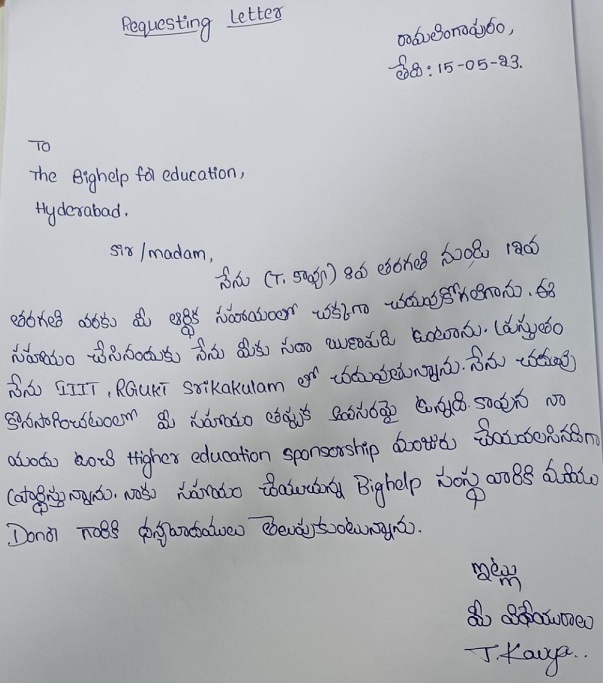 Requesting Letter
రామలింగాపురం,
తేది : 15-05-23.
To
The Bighelp for education,
Hyderabad.
Sir/madam,
నేను (T. కావ్య) 8వ తరగతి నుండి 10వ
తరగతి వరకు మీ ఆర్థిక సహాయంతో చక్కగా చదువుకోగలిగాను. ఈ
సహాయం చేసినందుకు నేను మీకు సదా ఋణపడి ఉంటాను. ప్రస్తుతం
నేను IIIT, RGUKT Srikakulam లో చదువుతున్నాను. నేను చదువు
కొనసాగించటంలో మీ సహాయం ఎక్కువ అవసరమై ఉన్నది. కావున నా
యందు ఉంచి Higher education sponsorship మంజూరు చేయవలసినదిగా
ప్రార్థిస్తున్నాను. నాకు సహాయం చేయుచున్న Bighelp సంస్థ వారికి మరియు
Donor గారికి ధన్యవాదములు తెలుపుకుంటున్నాను.
ఇట్లు
మీ విధేయురాలు
T. Kavya..